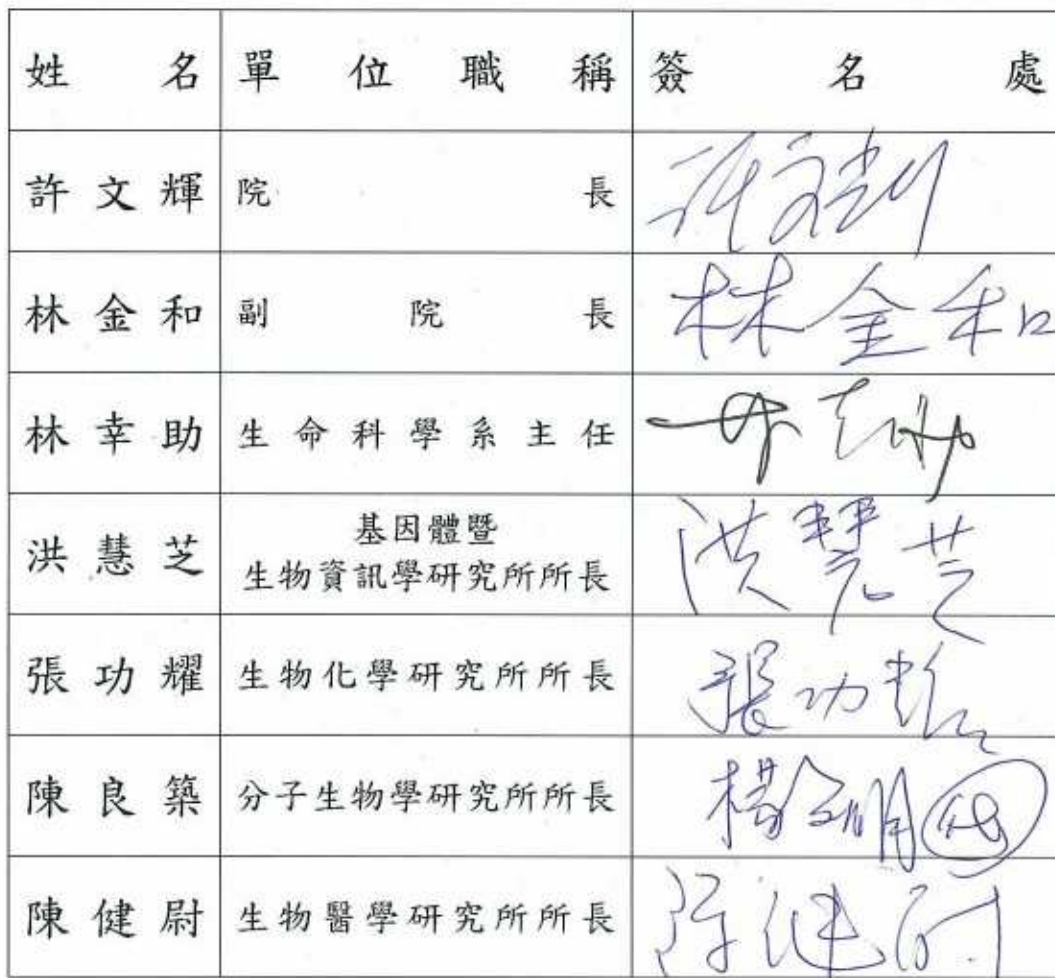 姓名 單位職稱 簽名處
許文輝 院長 許文輝
林金和 副院長 林金和
林幸助 生命科學系主任
洪慧芝 基因體暨 洪慧芝
生物資訊學研究所所長
張功耀 生物化學研究所所長 張功耀
陳良築 分子生物學研究所所長 代
陳健尉 生物醫學研究所所長 陳健尉